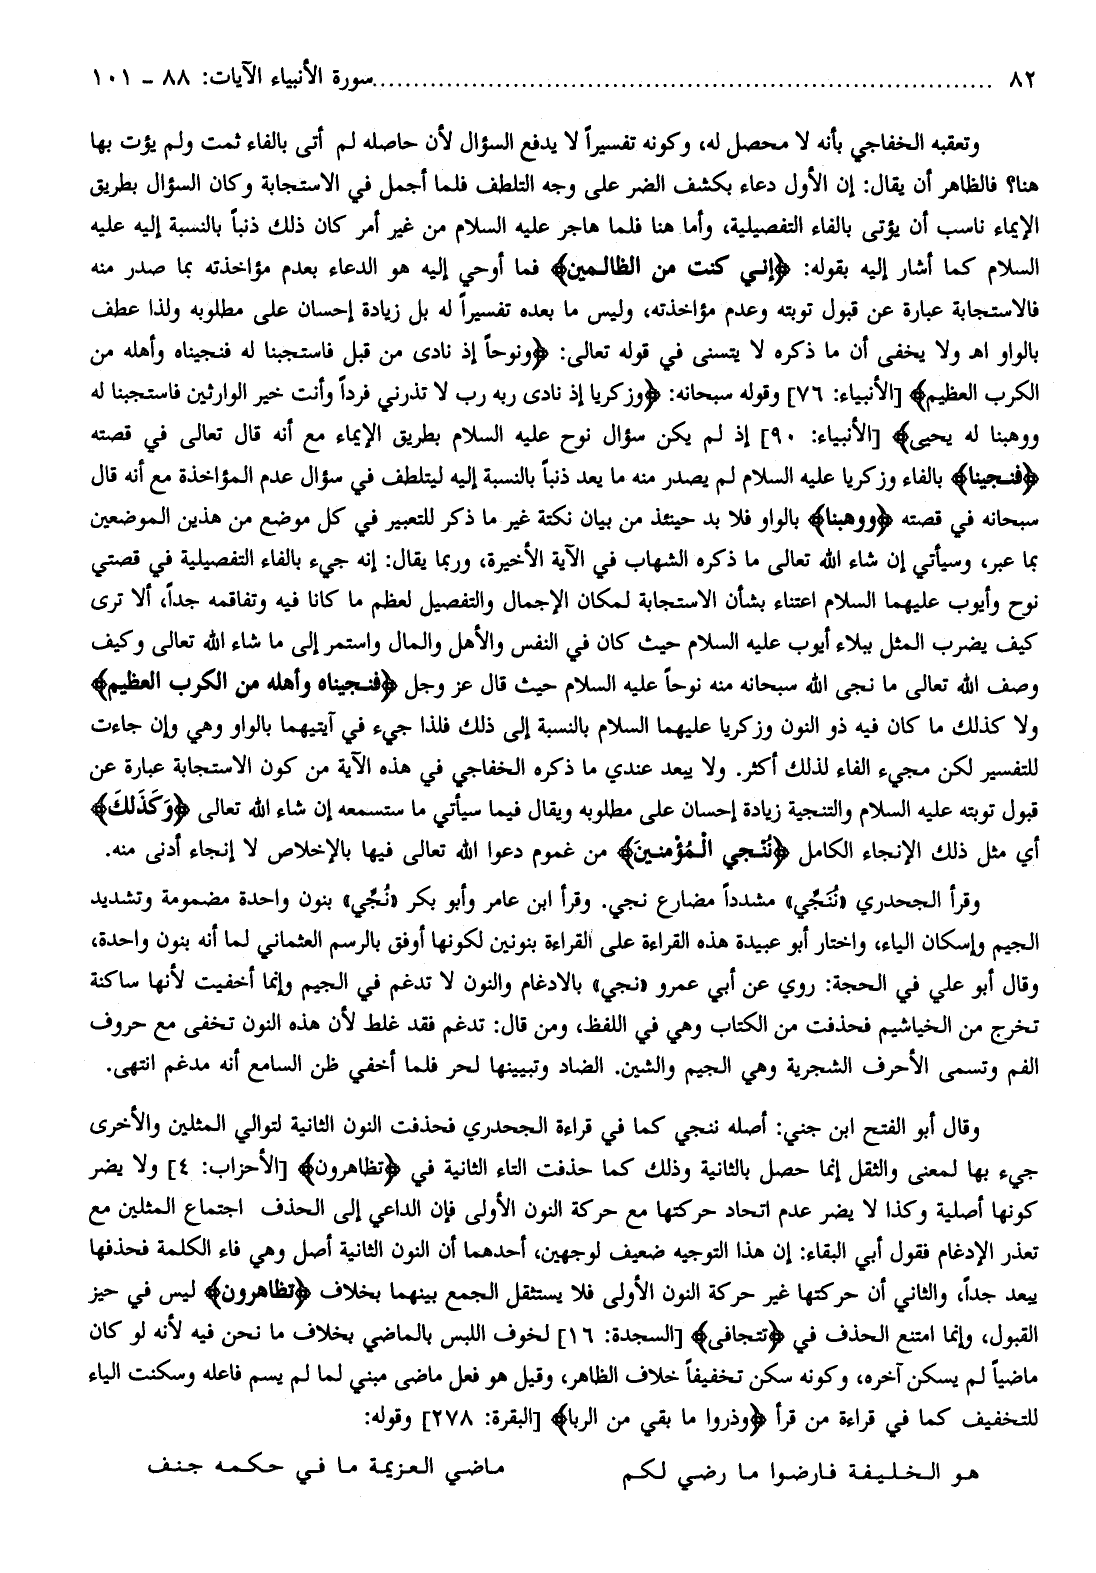 ٨٢ .......................................................................... سورة الأنبياء الآيات: ٨٨ ـ ١٠١
وتعقبه الخفاجي بأنه لا محصل له، وكونه تفسيراً لا يدفع السؤال لأن حاصله لم أتى بالفاء ثمت ولم يؤت بها
هنا؟ فالظاهر أن يقال: إن الأول دعاء بكشف الضر على وجه التلطف فلما أجمل في الاستجابة وكان السؤال بطريق
الإيماء ناسب أن يؤتى بالفاء التفصيلية، وأما هنا فلما هاجر عليه السلام من غير أمر كان ذلك ذنباً بالنسبة إليه عليه
السلام كما أشار إليه بقوله: ﴿إني كنت من الظالمين﴾ فما أوحي إليه هو الدعاء بعدم مؤاخذته بما صدر منه
فالاستجابة عبارة عن قبول توبته وعدم مؤاخذته، وليس ما بعده تفسيراً له بل زيادة إحسان على مطلوبه ولذا عطف
بالواو اهـ ولا يخفى أن ما ذكره لا يتسنى في قوله تعالى: ﴿ونوحاً إذ نادى من قبل فاستجبنا له فنجيناه وأهله من
الكرب العظيم﴾ [الأنبياء: ٧٦] وقوله سبحانه: ﴿وزكريا إذ نادى ربه رب لا تذرني فرداً وأنت خير الوارثين فاستجبنا له
ووهبنا له يحيى﴾ [الأنبياء: ٩٠] إذ لم يكن سؤال نوح عليه السلام بطريق الإيماء مع أنه قال تعالى في قصته
﴿فنجينا﴾ بالفاء وزكريا عليه السلام لم يصدر منه ما يعد ذنباً بالنسبة إليه ليتلطف في سؤال عدم المؤاخذة مع أنه قال
سبحانه في قصته ﴿ووهبنا﴾ بالواو فلا بد حينئذ من بيان نكتة غير ما ذكر للتعبير في كل موضع من هذين الموضعين
بما عبر، وسيأتي إن شاء الله تعالى ما ذكره الشهاب في الآية الأخيرة، وربما يقال: إنه جيء بالفاء التفصيلية في قصتي
نوح وأيوب عليهما السلام اعتناء بشأن الاستجابة لمكان الإجمال والتفصيل لعظم ما كانا فيه وتفاقمه جداً، ألا ترى
كيف يضرب المثل ببلاء أيوب عليه السلام حيث كان في النفس والأهل والمال واستمر إلى ما شاء الله تعالى وكيف
وصف الله تعالى ما نجى الله سبحانه منه نوحاً عليه السلام حيث قال عز وجل ﴿فنجيناه وأهله من الكرب العظيم﴾
ولا كذلك ما كان فيه ذو النون وزكريا عليهما السلام بالنسبة إلى ذلك فلذا جيء في آيتيهما بالواو وهي وإن جاءت
للتفسير لكن مجيء الفاء لذلك أكثر. ولا يبعد عندي ما ذكره الخفاجي في هذه الآية من كون الاستجابة عبارة عن
قبول توبته عليه السلام والتنجية زيادة إحسان على مطلوبه ويقال فيما سيأتي ما ستسمعه إن شاء الله تعالى ﴿وَكَذَلكَ﴾
أي مثل ذلك الإنجاء الكامل ﴿نُنْجي الْمُؤْمنينَ﴾ من غموم دعوا الله تعالى فيها بالإخلاص لا إنجاء أدنى منه.
وقرأ الجحدري «نُنَجِّي» مشدداً مضارع نجي. وقرأ ابن عامر وأبو بكر «نُجِّي» بنون واحدة مضمومة وتشديد
الجيم وإسكان الياء، واختار أبو عبيدة هذه القراءة على القراءة بنونين لكونها أوفق بالرسم العثماني لما أنه بنون واحدة،
وقال أبو علي في الحجة: روي عن أبي عمرو «نجي» بالادغام والنون لا تدغم في الجيم وإنما أخفيت لأنها ساكنة
تخرج من الخياشيم فحذفت من الكتاب وهي في اللفظ، ومن قال: تدغم فقد غلط لأن هذه النون تخفى مع حروف
الفم وتسمى الأحرف الشجرية وهي الجيم والشين. الضاد وتبيينها لحر فلما أخفي ظن السامع أنه مدغم انتهى.
وقال أبو الفتح ابن جني: أصله ننجي كما في قراءة الجحدري فحذفت النون الثانية لتوالي المثلين والأخرى
جيء بها لمعنى والثقل إنما حصل بالثانية وذلك كما حذفت التاء الثانية في ﴿تظاهرون﴾ [الأحزاب: ٤] ولا يضر
كونها أصلية وكذا لا يضر عدم اتحاد حركتها مع حركة النون الأولى فإن الداعي إلى الحذف اجتماع المثلين مع
تعذر الإدغام فقول أبي البقاء: إن هذا التوجيه ضعيف لوجهين، أحدهما أن النون الثانية أصل وهي فاء الكلمة فحذفها
يبعد جداً، والثاني أن حركتها غير حركة النون الأولى فلا يستثقل الجمع بينهما بخلاف ﴿تظاهرون﴾ ليس في حيز
القبول، وإنما امتنع الحذف في ﴿تتجافى﴾ [السجدة: ١٦] لخوف اللبس بالماضي بخلاف ما نحن فيه لأنه لو كان
ماضياً لم يسكن آخره، وكونه سكن تخفيفاً خلاف الظاهر، وقيل هو فعل ماضى مبني لما لم يسم فاعله وسكنت الياء
للتخفيف كما في قراءة من قرأ ﴿وذروا ما بقي من الربا﴾ [البقرة: ٢٧٨] وقوله:
هو الخليفة فارضوا ما رضي لكم ماضي العزيمة ما في حكمه جنف